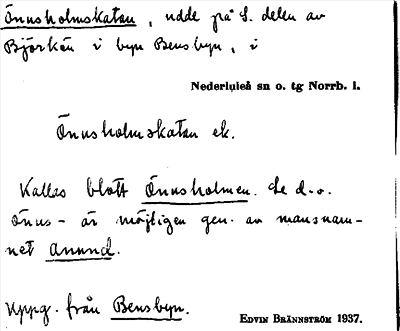 Önusholmskatan, udde på S. delen av
Björkön i byn Bensbyn, i
Nederluleå sn o. tg Norrb. l.
Önusholmskatan ek.
Kallas blott Önusholmen. Se d.o.
Önus- är möjligen gen. av mansnam-
net Anund.
Uppg. från Bensbyn.
EDVIN BRÄNNSTRÖM 1937.